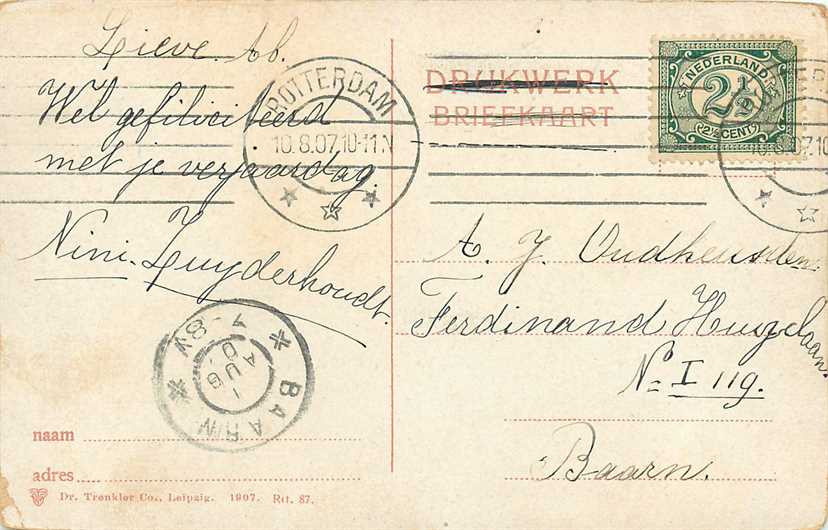 Lieve Ab.
Wel gefiliciteerd
met je verjaardag.
Nini Zuyderhoudt.
ROTTERDAM
10.8.07.10-11N
DRUKWERK
BRIEFKAART
NEDERLAND
2½
2½ CENT
A. J. Oudheusden
Ferdinand Huyclaan.
No I 119.
Baarn.
BAARN
AUG
7-8V
naam
adres
Dr. Trenkler Co., Leipzig. 1907. Rtt. 87.